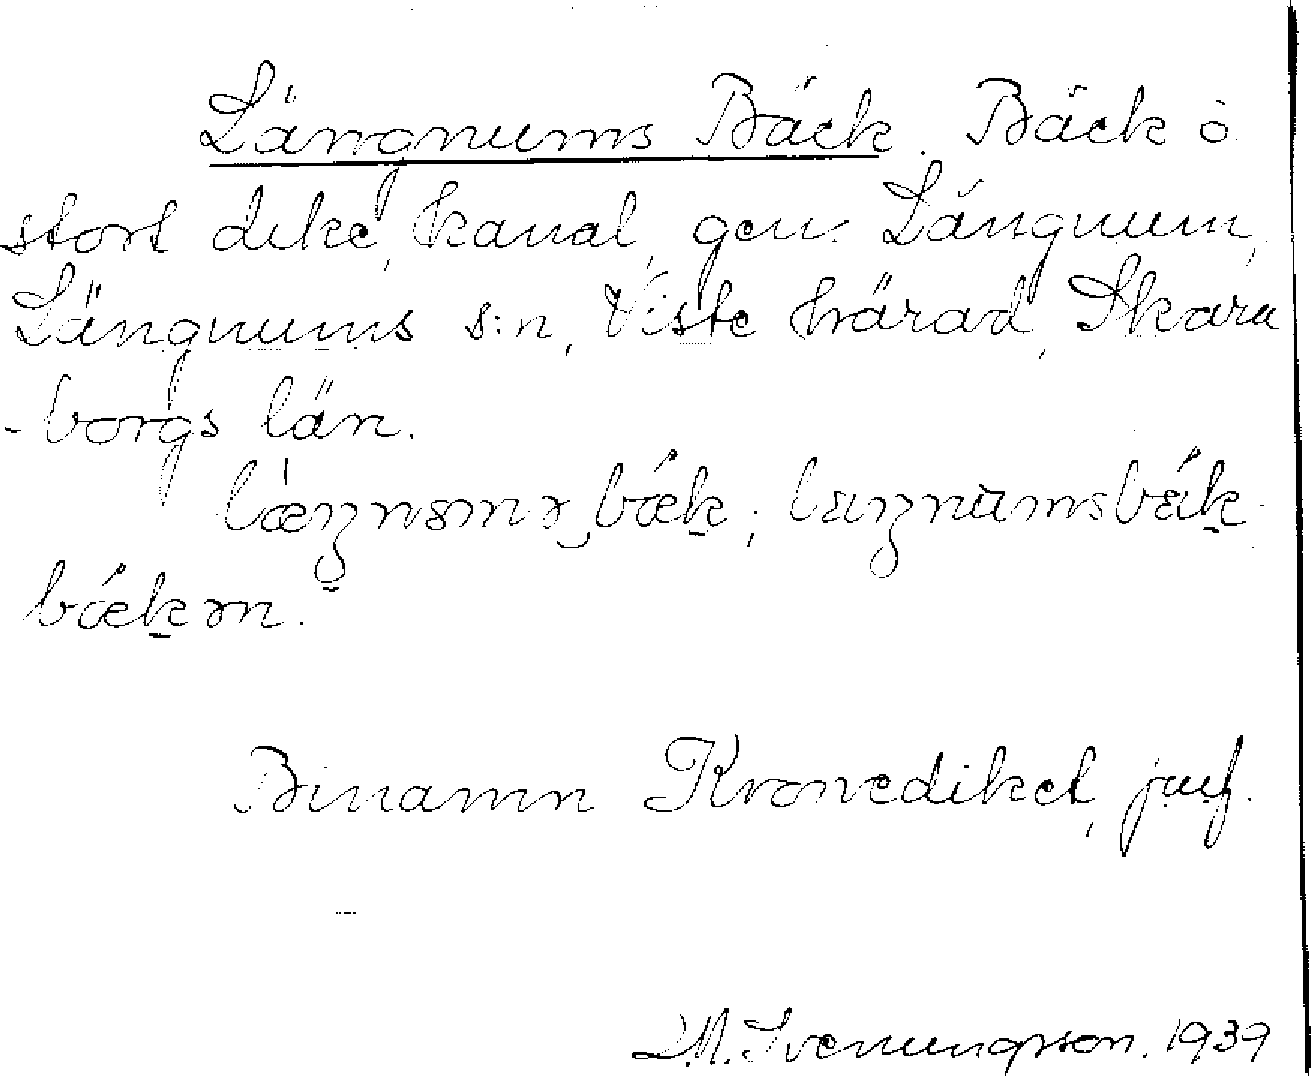 Längnums Bäck. Bäck o
stort dike, kanal, gm. Längnum,
Längnums s:n, Viste härad, Skara
-borgs län.
bæk;
bækən.
Binamn Kronediket, jmf.
D.M. Svenungsson. 1939